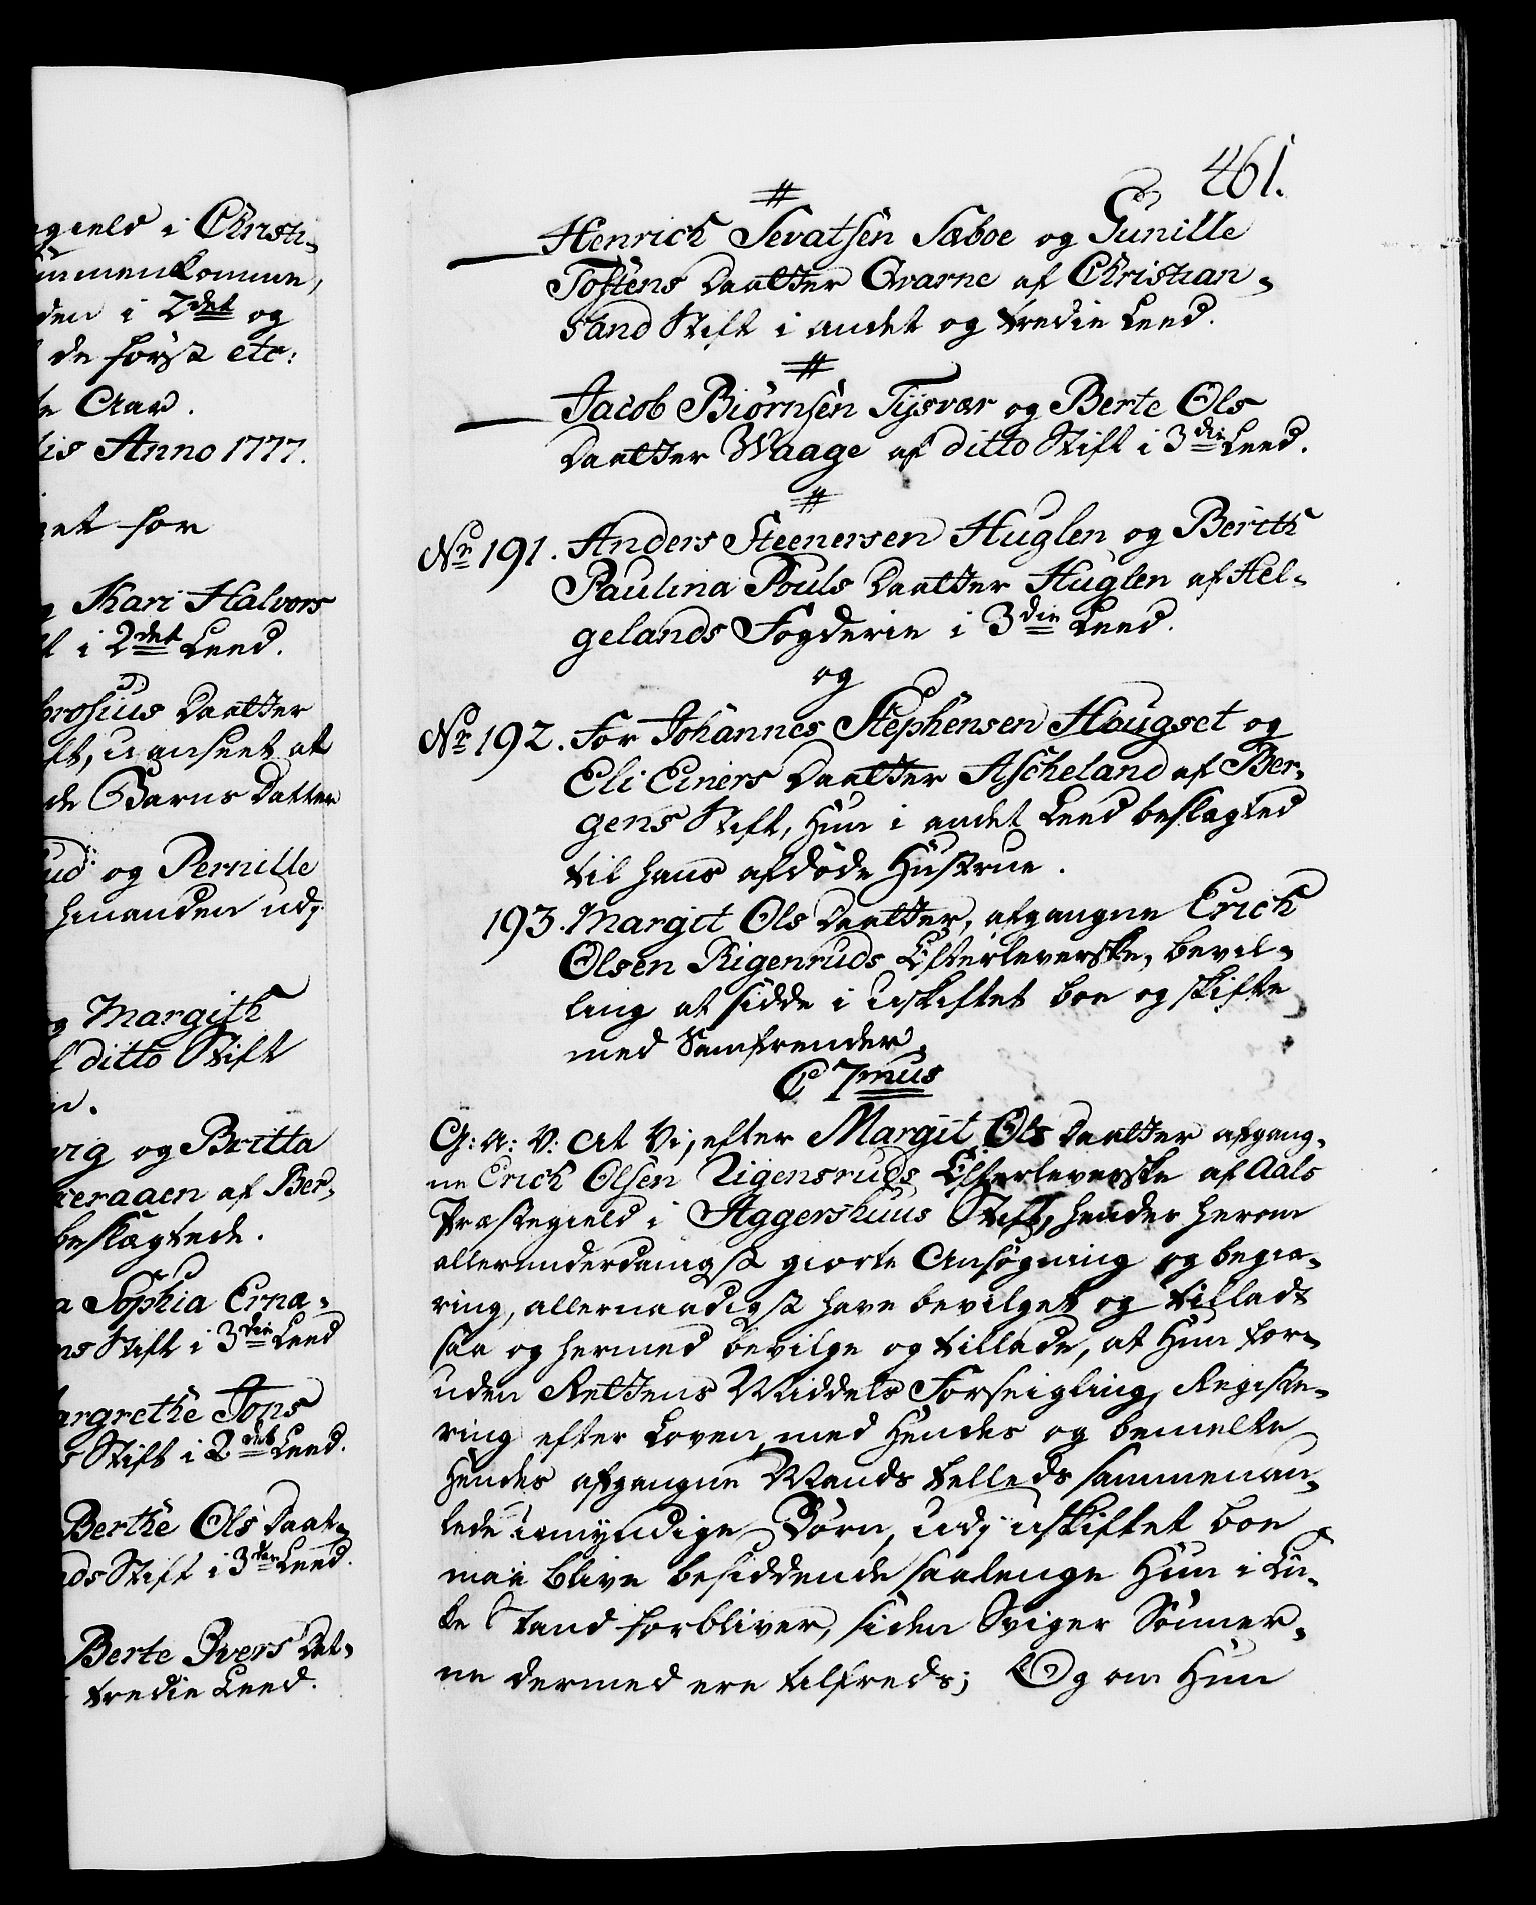 gield i Christi-
ommenkomne,
den i 2det og
de först etc:
te Aar.
lis Anno 1777.
get for
g Kari Halvors
ft i 2det Leed.
brosius Daatter
ft, uanseet at
de Barns Datter
ud og Pernille
hinanden udj
g Margith
f ditto Stift
n.
vig og Britta
eraaen af Ber-
beslægtede.
a Sophia Erna-
ns Stift i 3die Leed
argrethe Jons
s Stift i 2det Leed.
Berthe Ols Daat-
ds Stift i 3die Leed.
Berte Ivers Dat-
i tredie Leed.
461.
#
— Henrich Sevatsen Sæboe og Gunille
Tostens Daatter Qvarne af Christian-
sand Stift i andet og tredie Leed.
#
— Jacob Biörnsen Tysvær og Berte Ols
Daatter Waage af ditto Stift i 3die Leed.
#
No 191. Anders Steenersen Huglen og Berith
Paulina Pouls Daatter Huglen af Hel-
gelands Fogderie i 3die Leed.
og
No 192. For Johannes Stephensen Hougset og
Eli Einers Daatter Ascheland af Ber-
gens Stift, Hun i andet Leed beslægted
til hans afdöde Hustrue.
193. Margit Ols Daatter, afgangne Erich
Olsen Rigenruds Efterleverske, bevil-
ling at sidde i Uskiftet boe og skifte
med Samfrender.
C 7mus
G: A: V: At Vi, efter Margit Ols Daatter afgang-
ne Erich Olsen Rigensruds Efterleverske af Aals
Præstegield i Aggershuus Stift, hendes herom
allerunderdanigst giorte Ansögning og begiæ-
ring, allernaadigst have bevilget og tilladt
saa og hermed bevilge og tillade, at Hun for-
uden Rettens Middels Forseigling, Registe-
ring efter Loven, med Hendes og bemelte
Hendes afgangne Mands telleds sammenav-
lede Umyndige Börn, udj uskiftet boe
maa blive besiddende saalenge Hun i En-
ke Stand forbliver, siden Sviger Sönner-
ne dermed ere tilfreds; Og om Hun